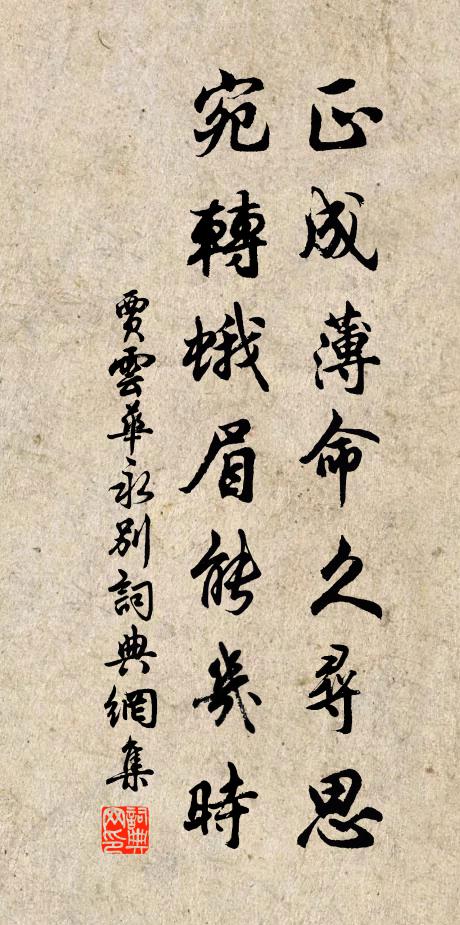 正成薄命久尋思
宛轉蛾眉能幾時
賈雲華永別詞典網集
詞典网印